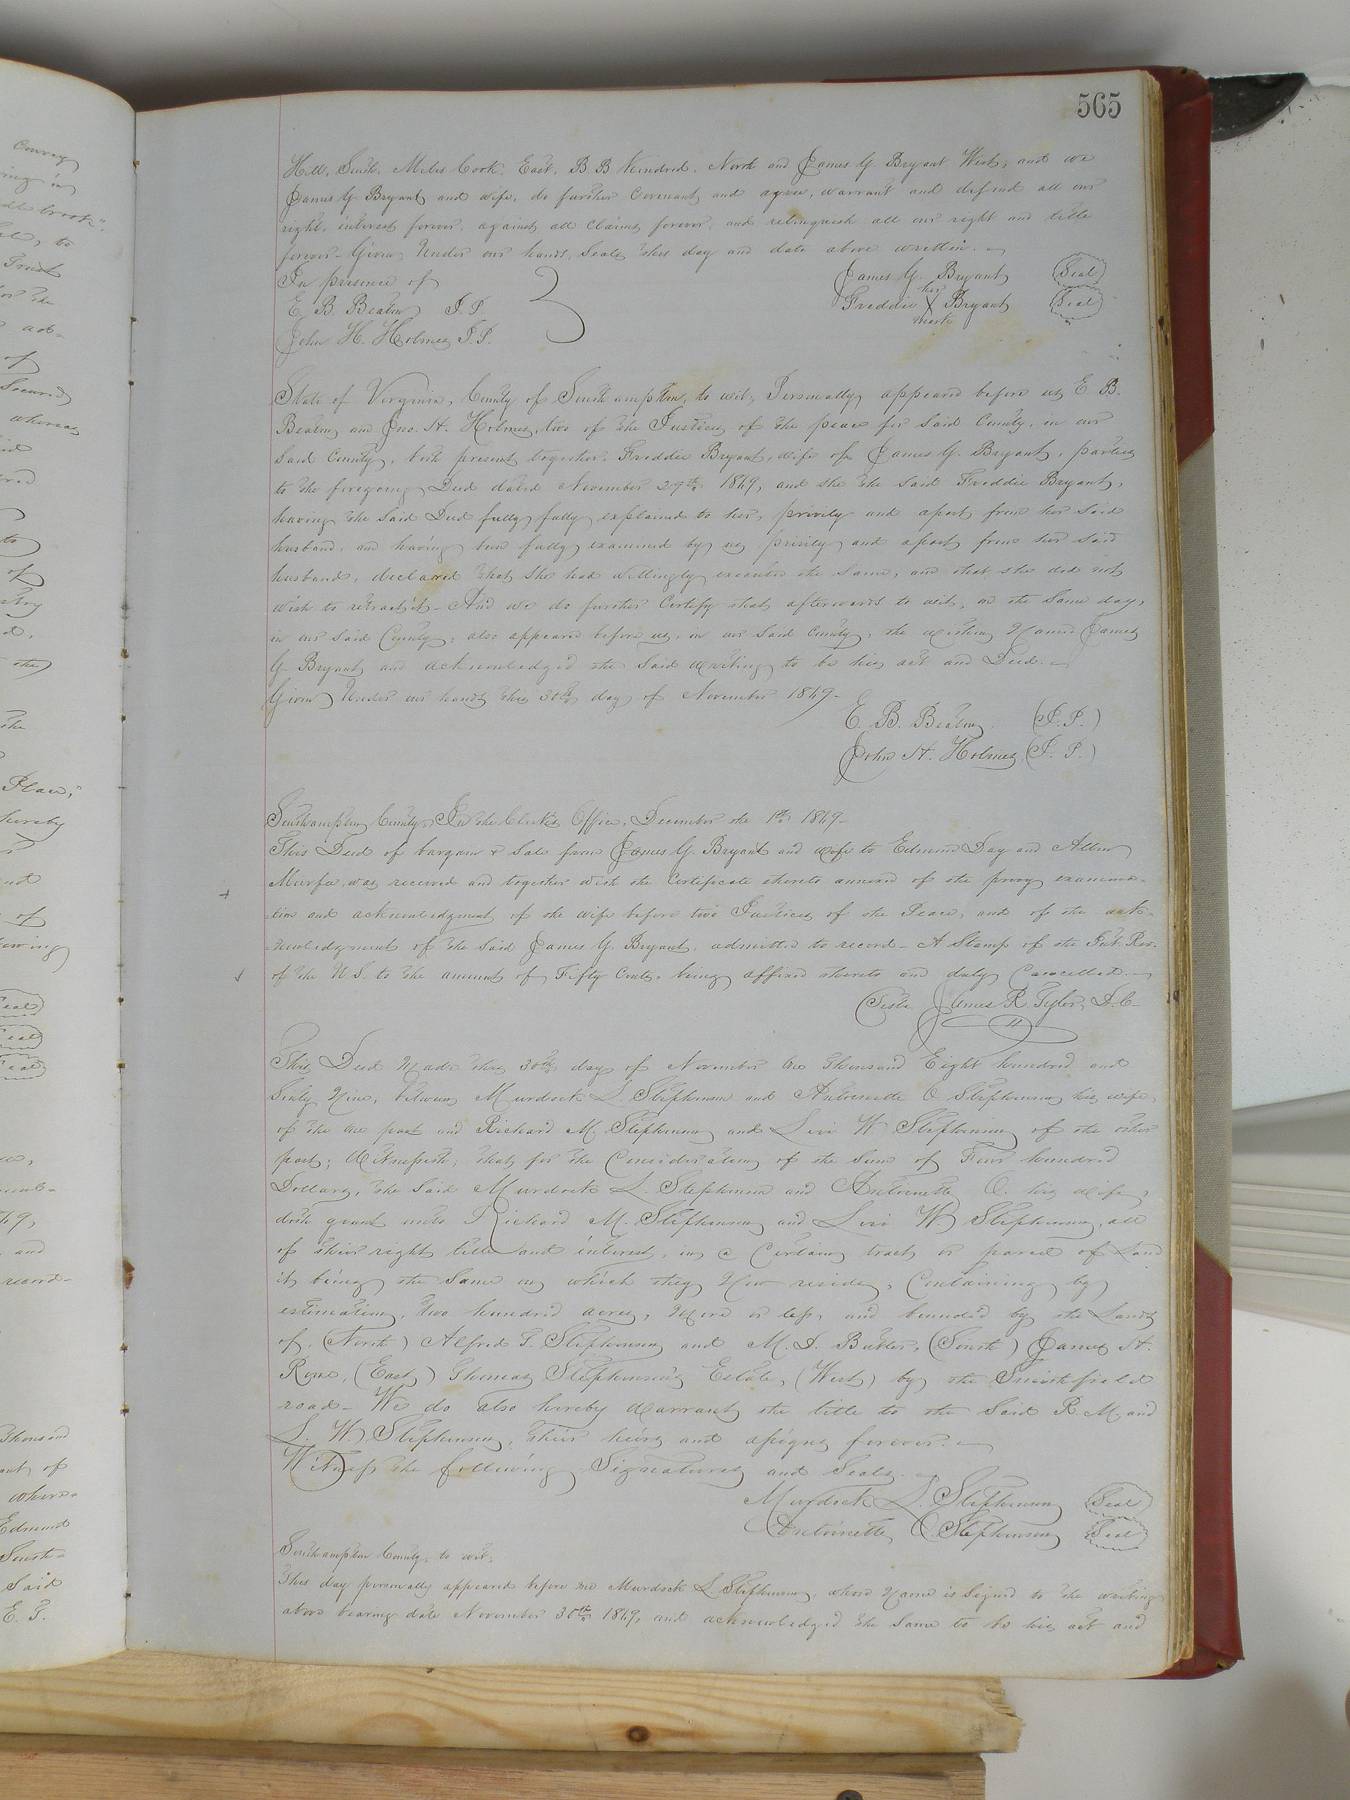 565
Hill, South, Miles Cook, East, B. B. Kindred, North and James G. Bryant West, and we
James G. Bryant and wife, do further Covenant and agree, warrant and defend all our
right, interest forever, against all claims forever, and relinquish all our right and title
forever - Given Under our hands, Seals this day and date above written. -
In presence of
E. B. Beaton J. P.
John H. Holmes J. P.
James G. Bryant (Seal)
her
Freddie X Bryant (Seal)
mark
State of Virginia, County of Southampton, to wit; Personally appeared before us E B.
Beaton and Jno. H. Holmes, two of the Justices of the peace for Said County, in our
Said County, both present together, Freddie Bryant, wife of James G. Bryant, parties
to the foregoing Deed dated November 29th 1869, and she the Said Freddie Bryant,
having the Said Deed fully, fully explained to her, privily and apart from her Said
husband, and having been fully examined by us privily and apart from her Said
husband, declared that She had willingly executed the Same, and that she did not
wish to retract it - And we do further Certify that afterwards to wit, on the Same day,
in our Said County, also appeared before us, in our Said County, the within Named James
G. Bryant and acknowledged the Said writing to be his act and Deed. -
Given Under our hands this 30th day of November 1869 -
E. B. Beaton (J. P.)
John H. Holmes (J. P.)
Southampton County, In the Clerk's Office, December the 1st 1869 -
This Deed of bargain & Sale from James G. Bryant and wife to Edmund Day and Allen
Murfee, was received and together with the Certificate thereto annexed of the privy examina-
tion and acknowledgment of the wife before two Justices of the Peace, and of the ack-
nowledgment of the Said James G. Bryant, admitted to record - A Stamp of the Int. Rev.
of the U. S. to the amount of Fifty Cents, being affixed thereto and duly Cancelled. -
Teste James R Tyler, D. C -
This Deed Made this 30th day of November One thousand Eight hundred and
Sixty Nine, between Murdock L. Stephenson and Antoinette C Stephenson his wife,
of the One part and Richard M. Stephenson and Levi W Stephenson of the other
part; Witnesseth, that for the Consideration of the Sum of Four hundred
Dollars, the Said Murdock L. Stephenson and Antoinette C. his wife,
doth grant unto Richard M. Stephenson and Levi W Stephenson, all
of their right title and interest, in a Certain tract or parcel of Land
it being the Same on which they Now reside, Containing by
estimation, two hundred acres, More or less, and bounded by the Lands
of, (North) Alfred T. Stephenson and M. D. Butler, (South) James H.
Rose, (East) Thomas Stephenson's Estate, (West) by the Smithfield
road - We do also hereby Warrant the title to the Said R. M and
L. W Stephenson, their heirs and assigns forever. -
Witness the following Signatures and Seals -
Murdock L. Stephenson (Seal)
Antoinette C Stephenson (Seal)
Southampton County, to wit;
This day personally appeared before me Murdock L Stephenson, whose Name is Signed to the writing
above bearing date November 30th 1869, and acknowledged the Same to be his act and